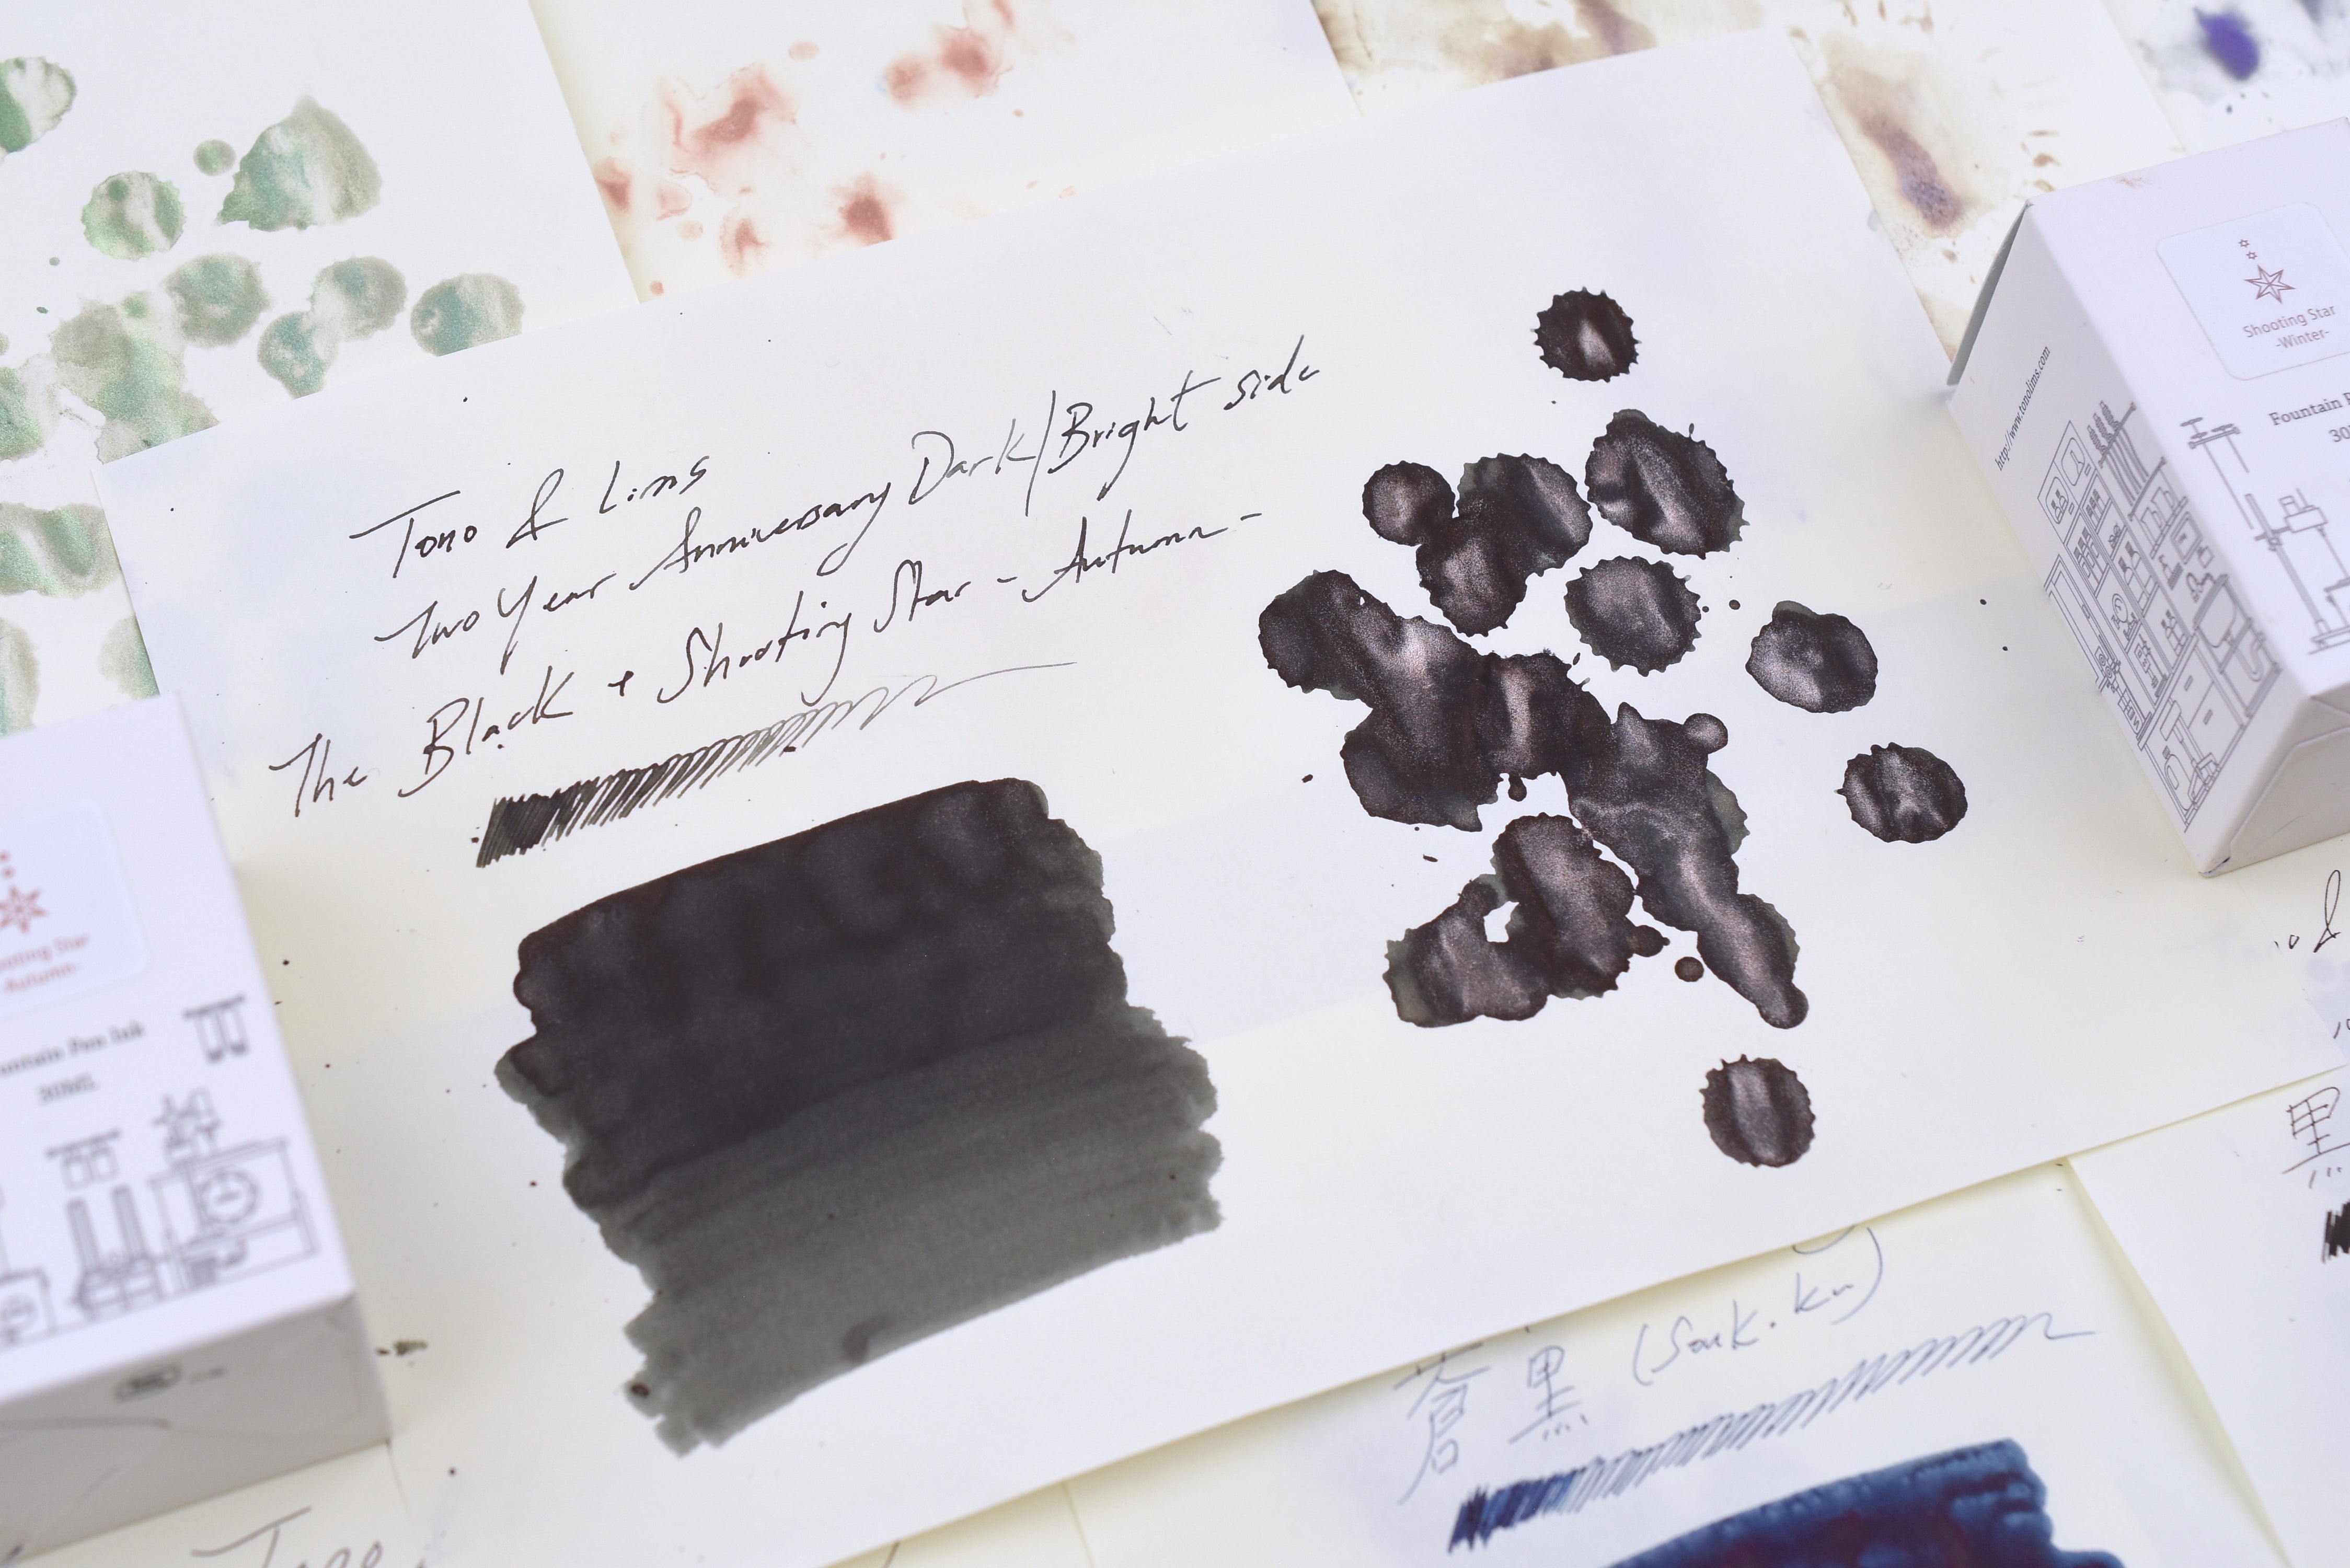 Tono & Lims
Two Year Anniversary Dark/Bright side
The Black + Shooting Star - Autumn -
Shooting Star
-Winter-
http://www.tonolims.com
Fountain
30
Shooting Star
-Autumn-
Fountain Pen Ink
30ML
&
黒
蒼黒 (Souk.ku)
Tono